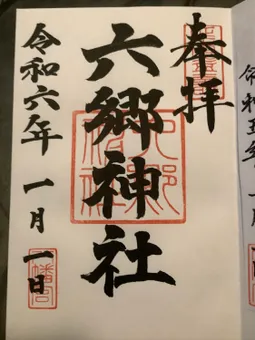 奉拝
六郷神社
令和六年 一月 一日
令和五年